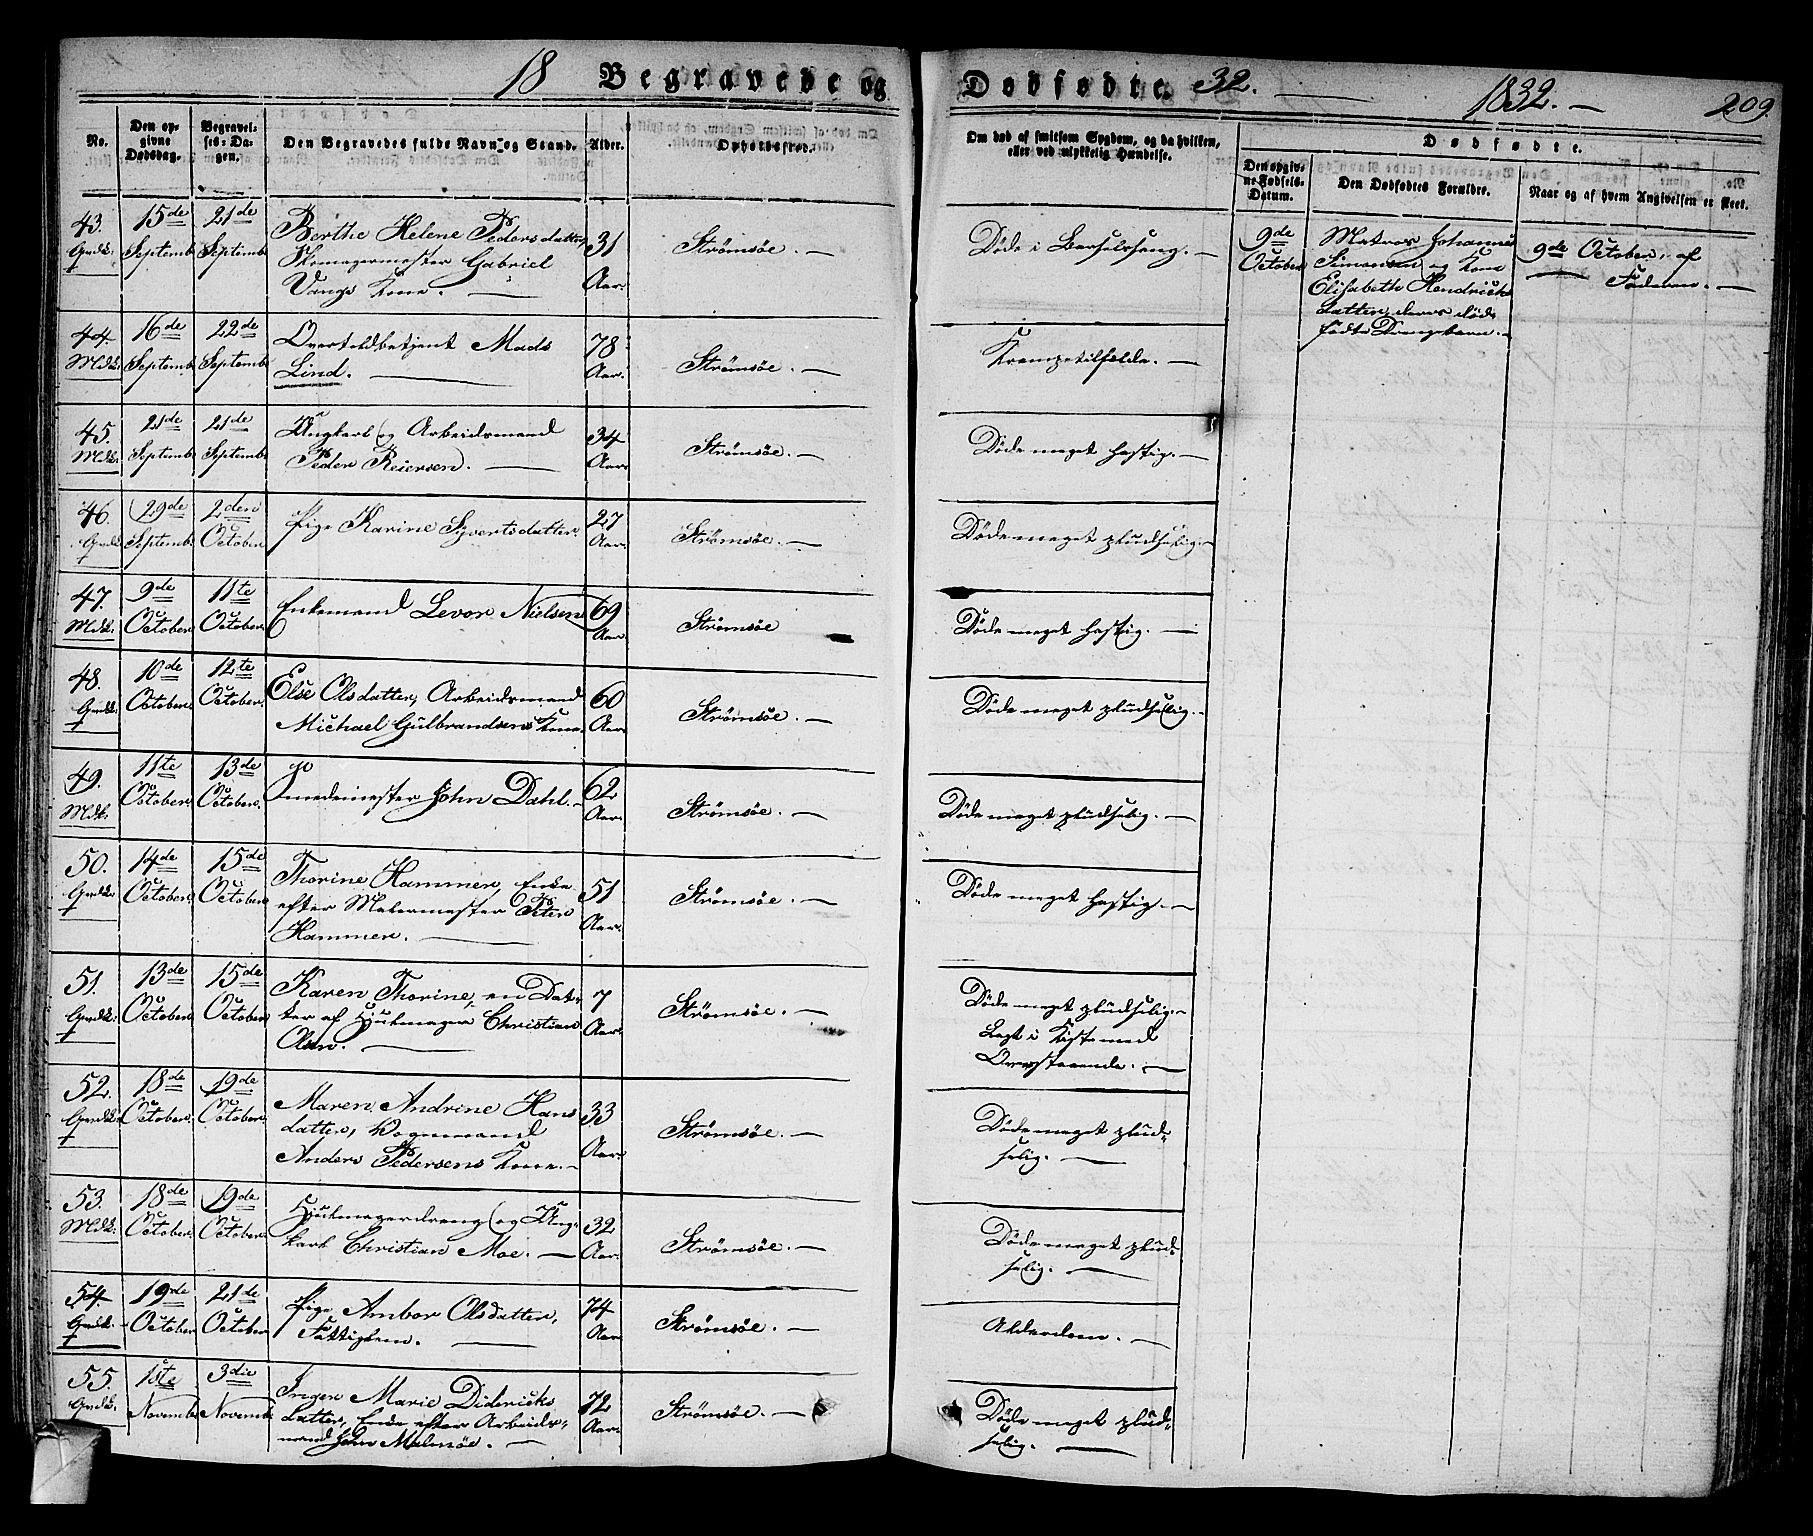 18 Begravede og Dødfødte. 32. 1832. 209.
No.
Den opgivne Dødsdag.
Begravelses-Dagen.
Den Begravedes fulde Navn og Stand.
Alder.
Opholdssted.
Om død af smitsom Sygdom, og da hvilken,
eller ved ulykkelig Hændelse.
Dødfødte.
Den opgivne Fødsels-Datum.
Den Dødfødtes Forældre.
Naar og af hvem Angivelsen er skeet.
43. 15de 21de Berthe Helene Pedersdatter
Qvdk: Septemb: Septemb: Skomagermester Gabriel 31 Strømsøe. Døde i Barselseng.
Vangs Kone. Aar.
9de October
Matros Johannes
Simonsen og Kone
Elisabeth Hendrichs
datter, deres død
fødte Drengebarn.
9de October, af
Faderen.
44. 16de 22de Overtoldbetjent Mads 78
Mdk: Septemb: Septemb: Lind. Aar. Strømsøe. Krampetilfælde.
45. 21de 21de Ungkarl og Arbeidsmand 34
Mdk: Septemb: Septemb: Peder Reiersen. Aar. Strømsøe. Døde meget hastig.
46. 29de 2den Pige Karine Syvertsdatter. 27
Qvdk: Septemb: October Aar. Strømsøe. Døde meget pludselig.
47. 9de 11te Enkemand Levor Nielsen 69
Mdk: October. October. Aar. Strømsøe Døde meget hastig.
48. 10de 12te Else Olsdatter, Arbeidsmand 60
Qvdk: October. October. Michael Gulbrandsens Kone. Aar. Strømsøe. Døde meget pludselig.
49. 11te 13de Smedemester John Dahl. 62
Mdk: October. October. Aar. Strømsøe. Døde meget pludselig.
50. 14de 15de Thorine Hammer, Enke 51
Qvdk: October. October. efter Malermester Peter Aar. Strømsøe. Døde meget hastig.
Hammer.
51. 13de 15de Karen Thorine, en Dat- 7
Qvdk: October. October. ter af Hjulmager Christian Aar. Strømsøe. Døde meget pludselig.
Olsen. Lagt i Kiste med
Overstaaende.
52. 18de 19de Maren Andrine Hans 33
Qvdk: October. October. datter, Vognmand Strømsøe. Døde meget plud-
Anders Pedersens Kone. Aar. selig.
53. 18de 19de Hjulmagerdreng og Ung- 32
Mdk: October. October. karl Christian Moe. Aar. Strømsøe. Døde meget plud-
selig.
54. 19de 21de Pige Ambor Olsdatter, 74
Qvdk: October October Fattiglem. Aar Strømsøe. Alderdom.
55. 1ste 3die Inger Marie Didericks 72
Qvdk: Novemb: Novemb: datter, Enke efter Arbeids- Aar. Strømsøe. Døde meget plud-
mand John Malmøe. selig.